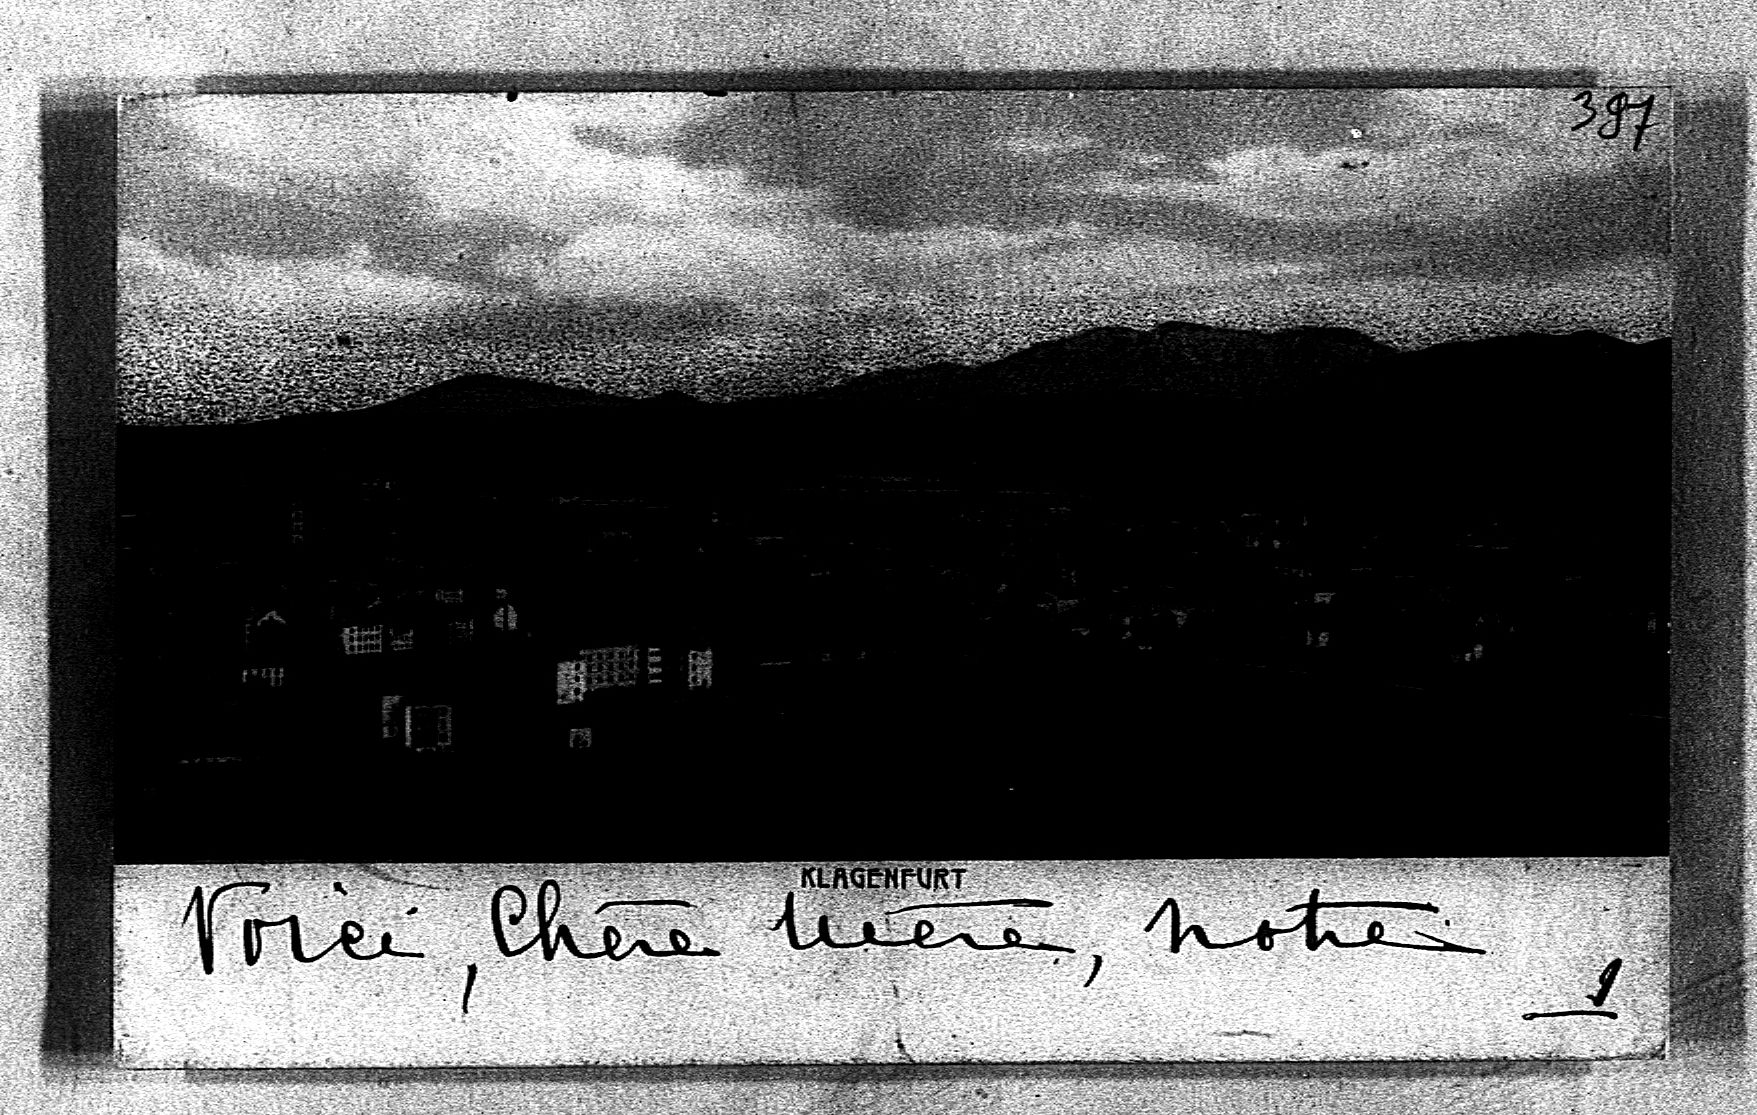 397
KLAGENFURT
Voici, Chère Mère, notre
1